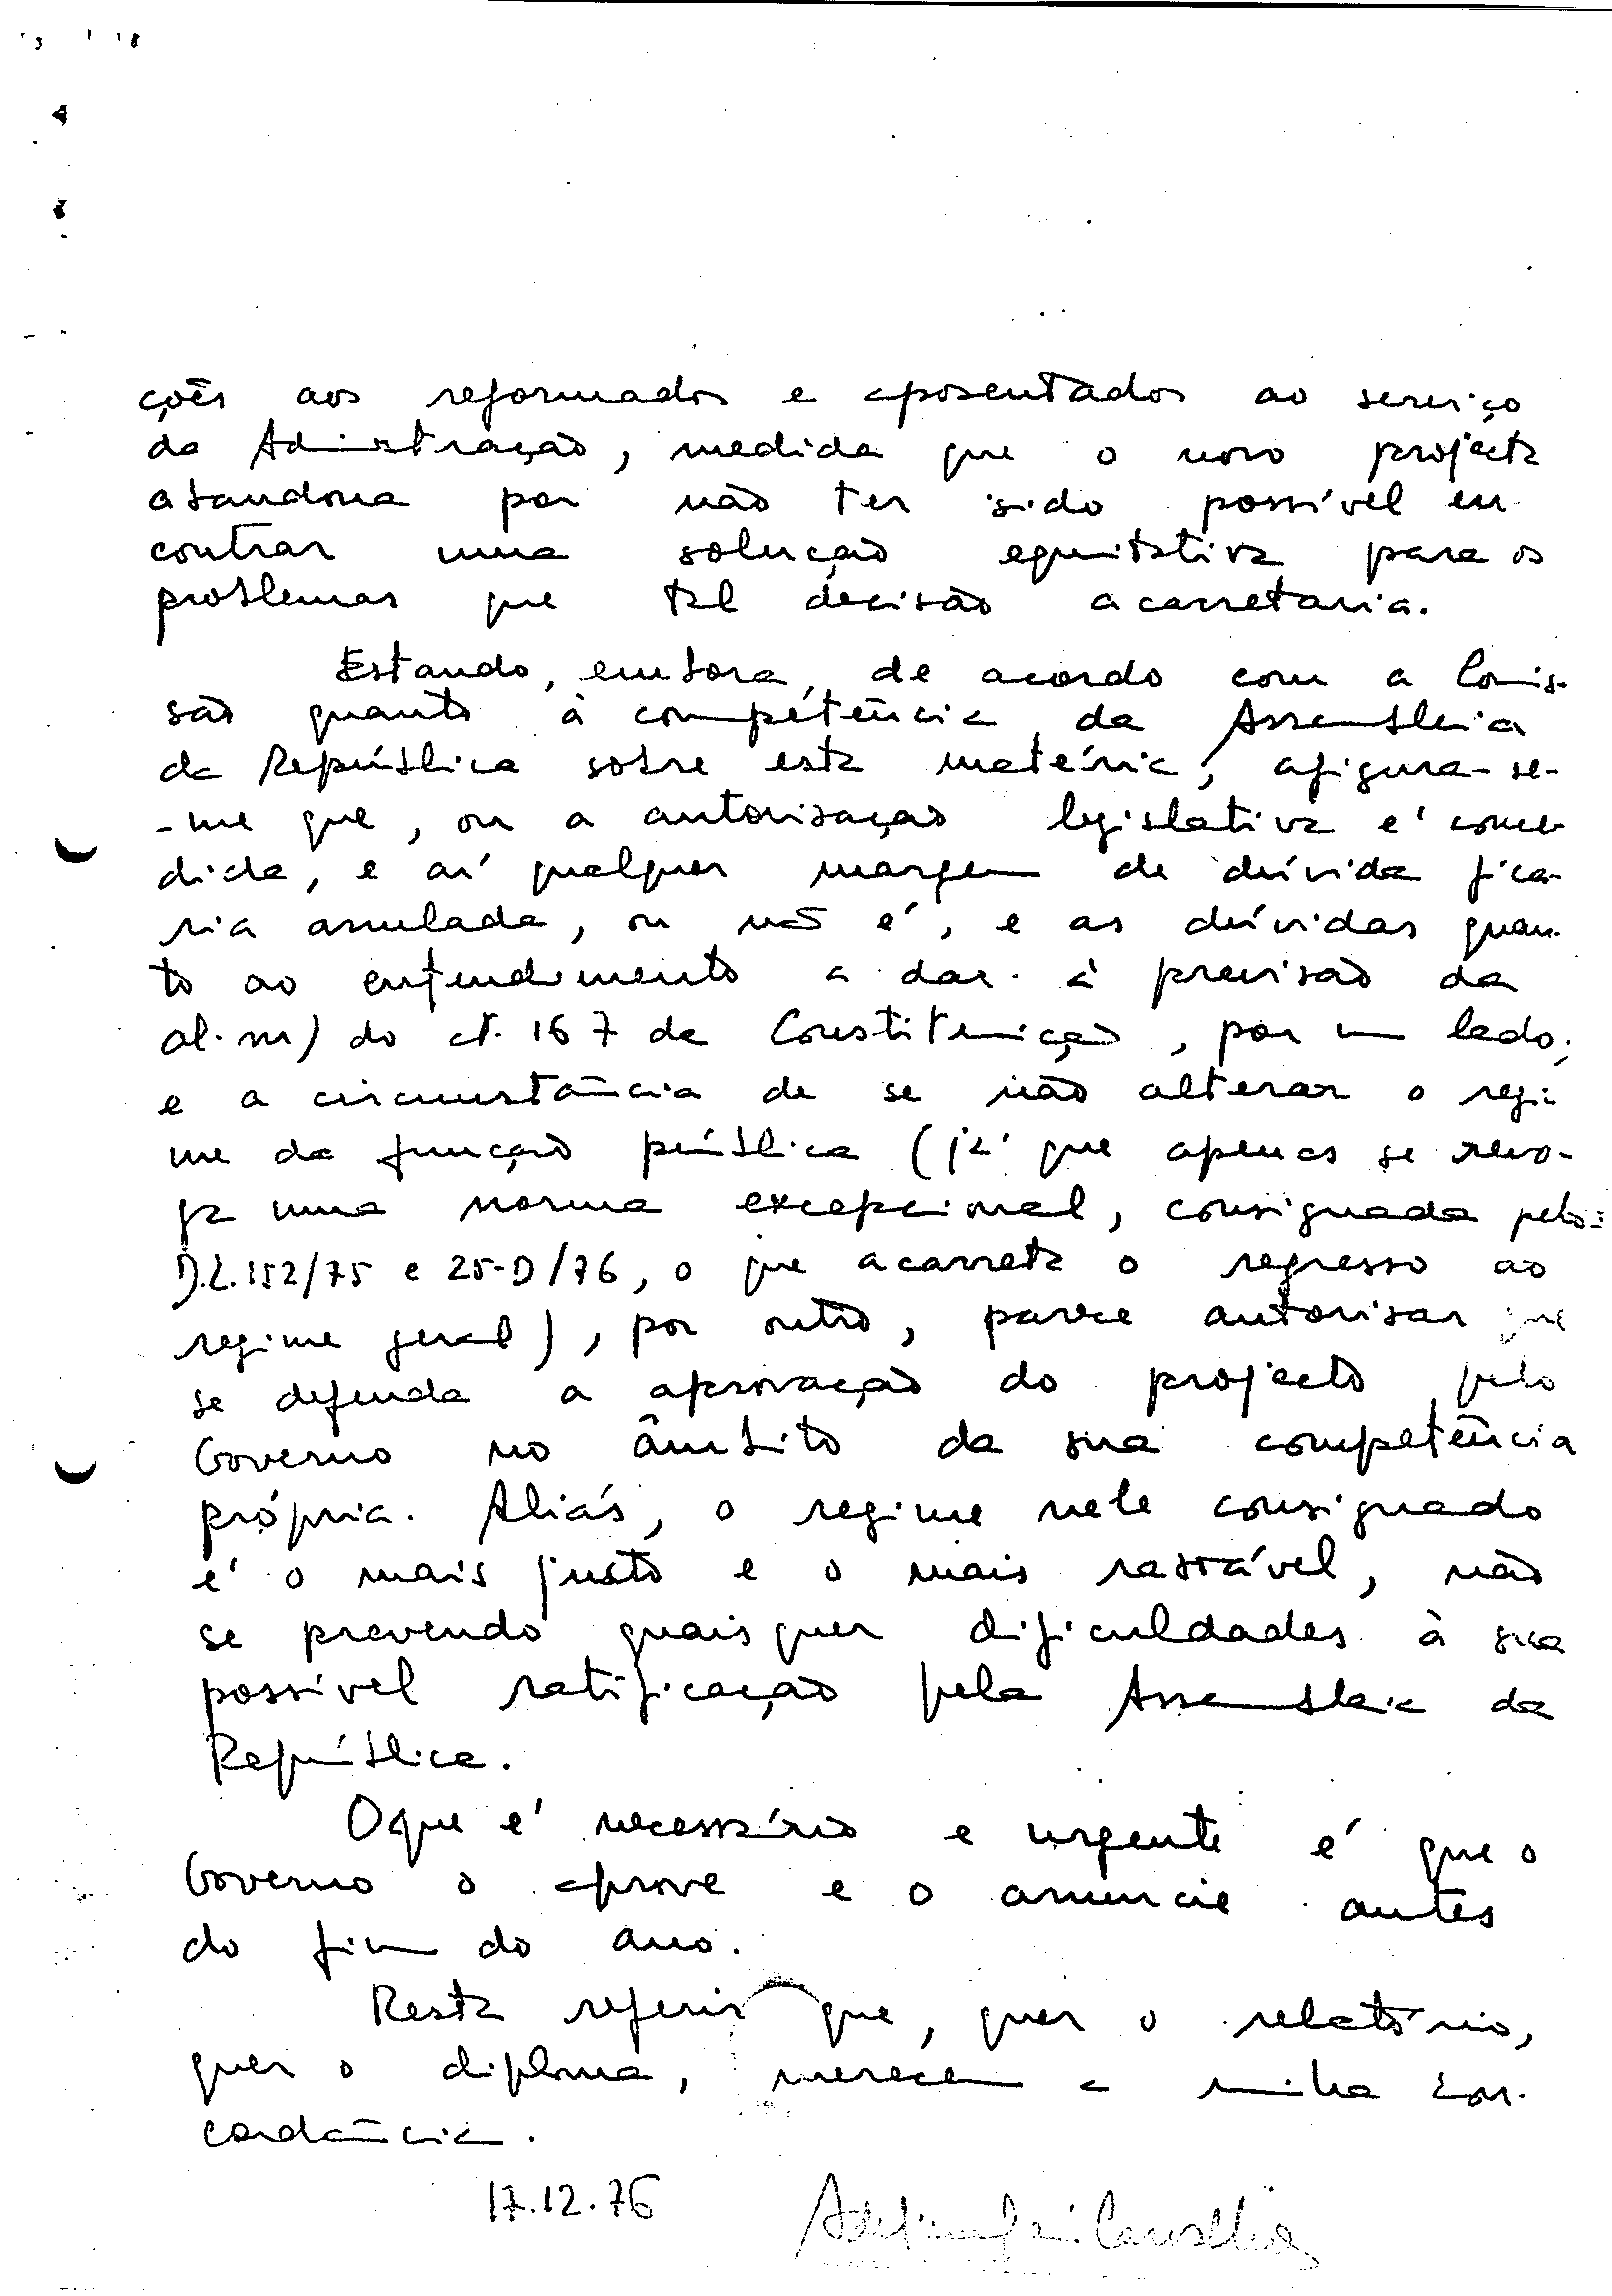 ções aos reformados e aposentados ao serviço
da Administração, medida que o novo projecto
abandona por não ter sido possível en-
contrar uma solução equitativa para os
problemas que tal decisão acarretaria.
Estando, embora, de acordo com a Comis-
são quanto à competência da Assembleia
da República sobre esta matéria, afigura-se-
-me que, ou a autorisação legislativa é conce-
dida, e aí qualquer margem de dúvida fica-
ria anulada, ou não é, e as dúvidas quan-
to ao entendimento a dar à previsão da
al. m) do art. 167 da Constituição, por um lado,
e a circunstância de se não alterar o regi-
me da função pública (já que apenas se revo-
ga uma norma excepcional, consignada pelos
D.L. 152/75 e 25-D/76, o que acarreta o regresso ao
regime geral), por outro, parece autorisar que
se defenda a aprovação do projecto pelo
Governo no âmbito da sua competência
própria. Aliás, o regime nele consignado
é o mais justo e o mais rasoável, não
se prevendo quaisquer dificuldades à sua
possível ratificação pela Assembleia da
República.
O que é necessário e urgente é que o
Governo o aprove e o anuncie antes
do fim do ano.
Resta referir que, quer o relatório,
quer o diploma, merecem a minha con-
cordância.
17.12.76